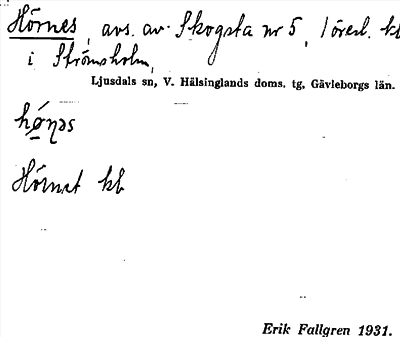 Hörnes, avs. av Skogsta nr 5, 1 öresl. kb
i Strömsholm,
Ljusdals sn, V. Hälsinglands doms. tg, Gävleborgs län.
Hörnet kb
Erik Fallgren 1931.